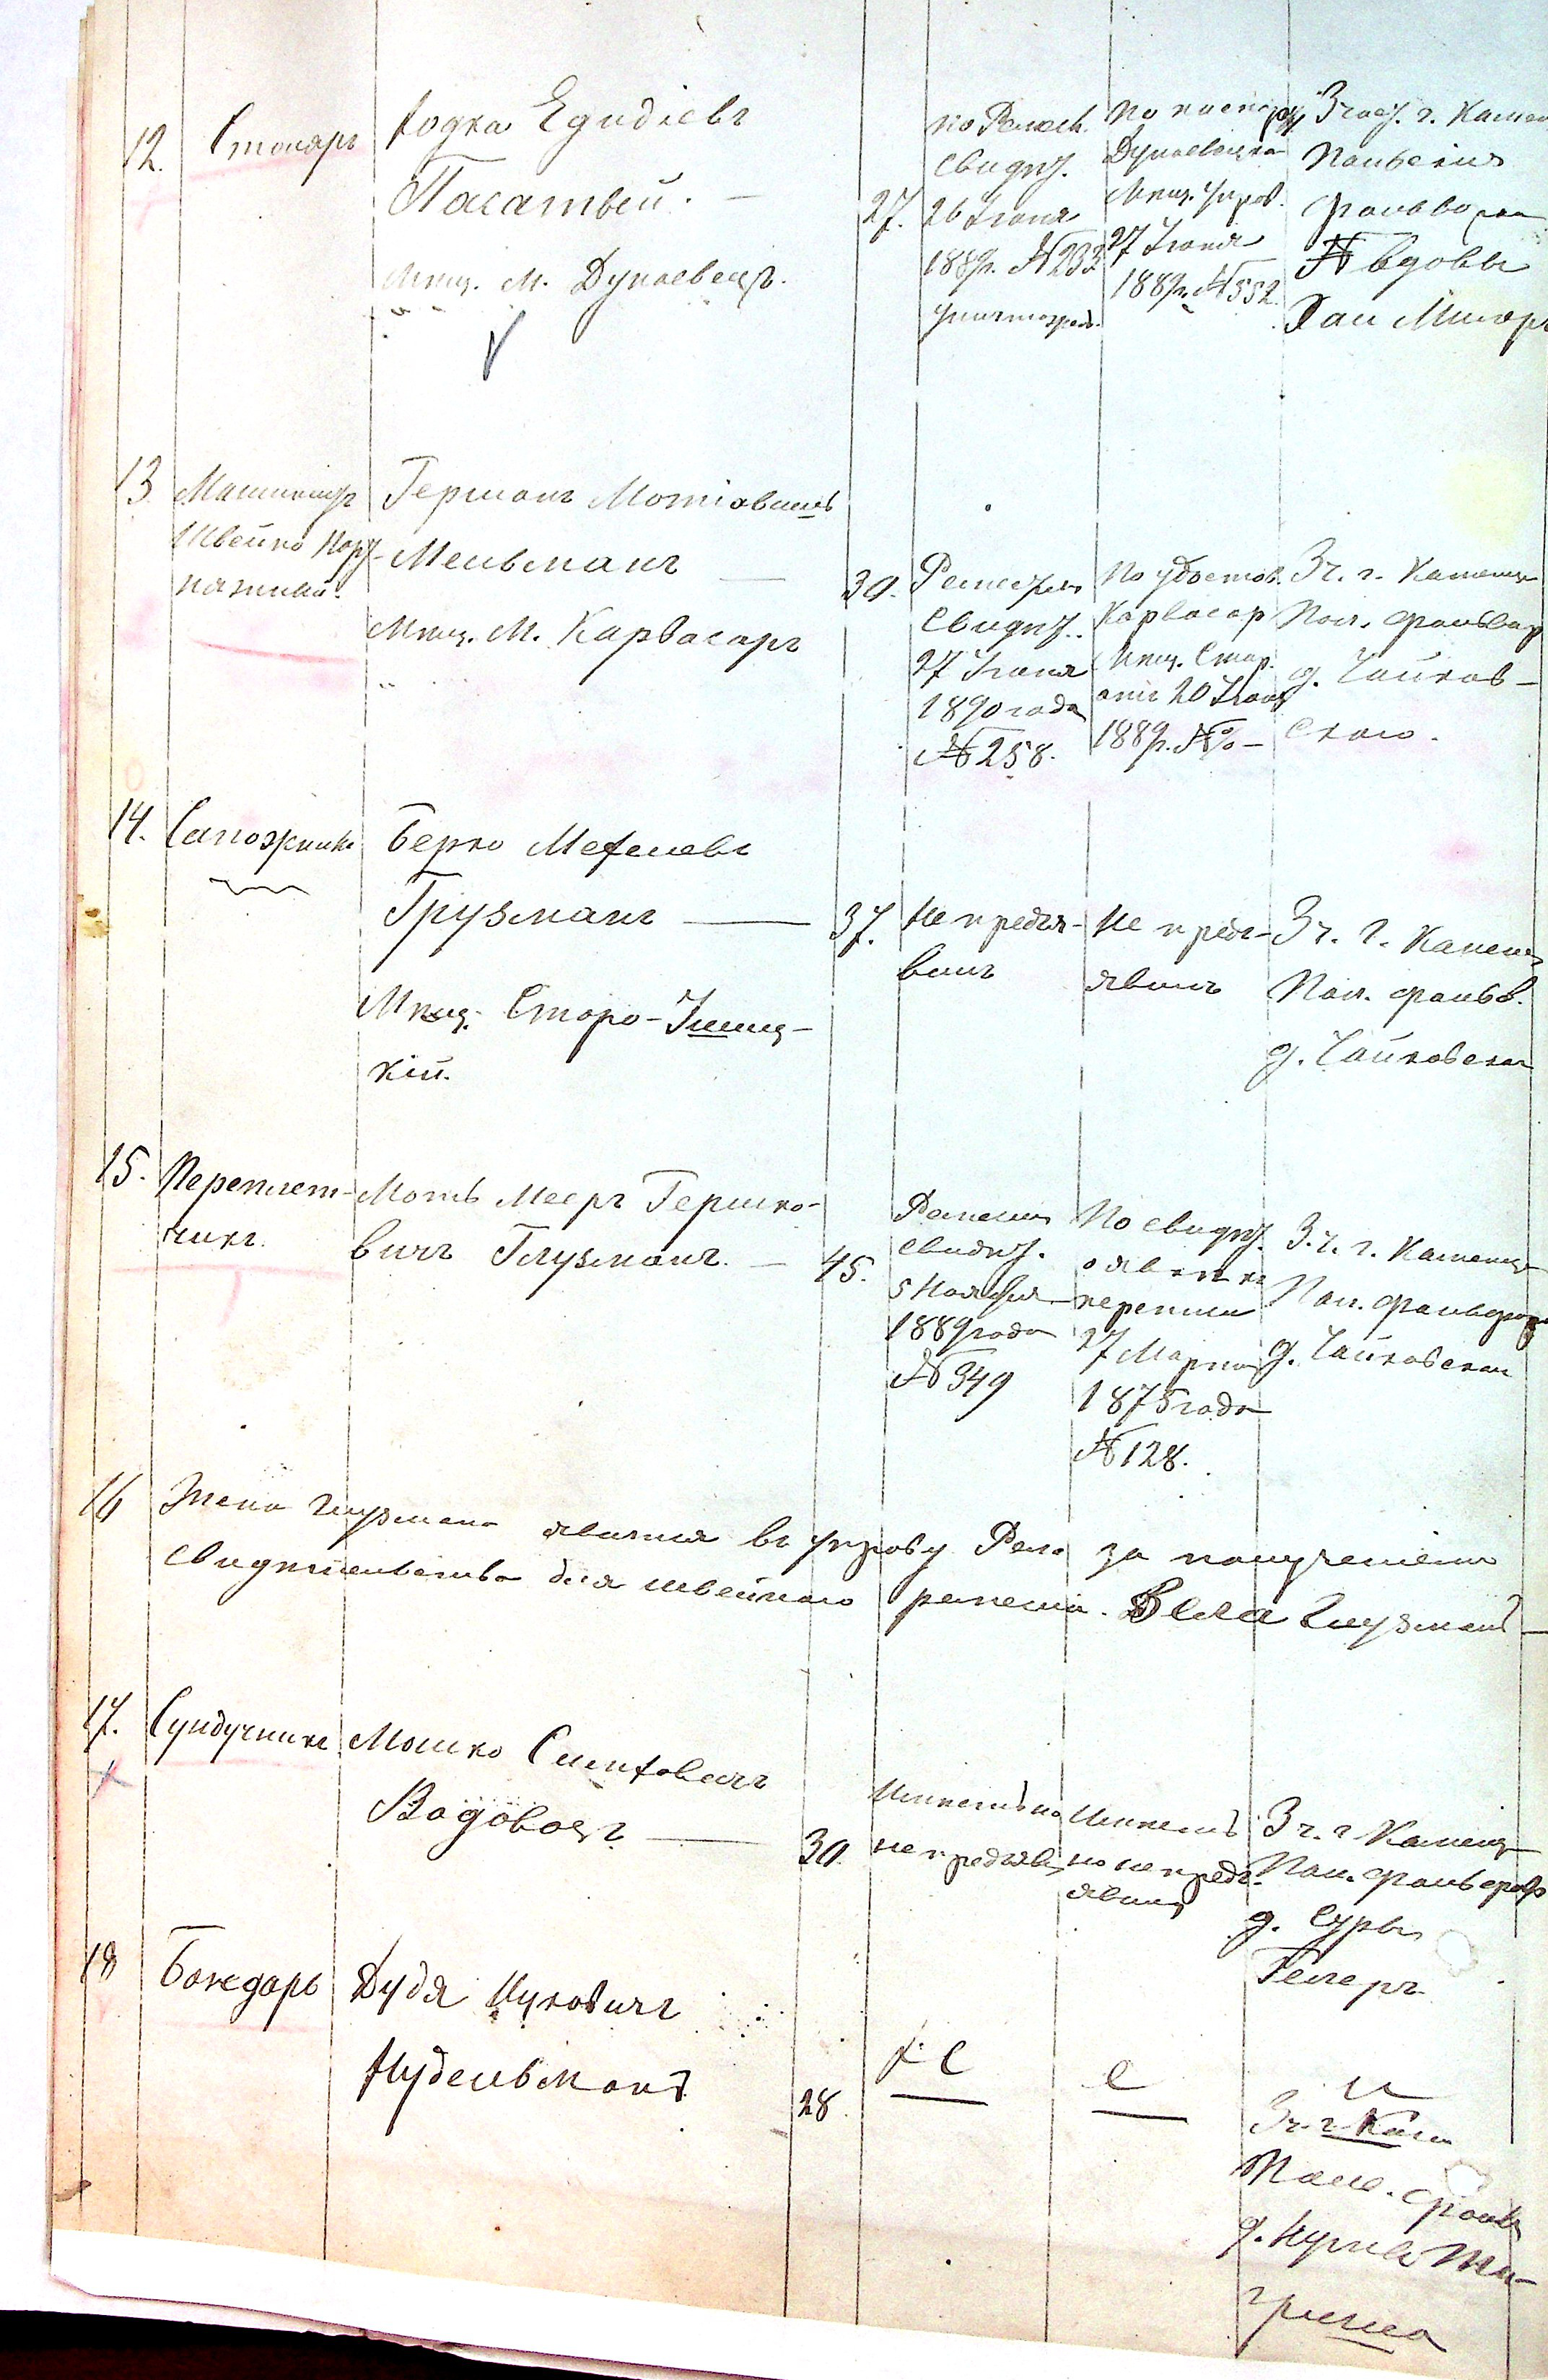 12.
Столяръ
Ходка Едидіевъ
Пасатый. —
Мѣщ. М. Дунаевецъ.
27.
по Ремесл.
Свидѣт.
26 Іюня
188 г. № 232
По паспорту
Дунаевецка
Мѣщ. Упров.
27 Іюня
188 г. № 552.
3 част. г. Камен
Польскія
фольворки
№ вдовы
Хаи
13.
Машинистъ
Швейно
Германъ Мотіовичъ
Мельманъ —
Мѣщ. М. Карвасаръ
30.
Ремесл.
Свидѣт.
27 Іюня
1890 года
№ 258.
По удостов.
Карвасар
Мѣщ. Стар.
отъ 20 Іюня
1889 г. №% —
3 ч. г. Каменца
Пол. фольвар
д. Чайков-
скаго.
14.
Сапожникъ
Берко Мехелевъ
Грузманъ —
Мѣщ. Старо-Ушиц-
кій.
37.
Не предъя-
вилъ
Не предъ-
явилъ
3 ч. г. Каменец
Пол. фольв.
д. Чайковскаг
15.
Переплет-
чикъ.
Мотъ Мееръ Гершко-
вичъ Глузманъ. —
45.
Ремесл
Свидѣт.
5 Ноября
1889 года
№ 349
По свидѣт.
о явкѣ къ
переписи
27 Марта
1875 года
№ 128.
3 ч. г. Каменца
Пол. фольварк
д. Чайковскаг
16
Жена Глузмана явится въ управу Рем. за полученіемъ
свидѣтельства для швейнаго ремесла. Бела Глузманъ —
17.
Сундучникъ
Мошко
Водовозъ —
30.
Имѣетъ но
не предъяв
Имѣетъ
но не предъ-
явилъ
3 ч. г. Каменца
Пол. фольварк
д. Суры
Гелеръ
18
Бондарь
Дудя Нуховичъ
Нудельманъ
28.
3 ч. г. Кам
Поль. фольв